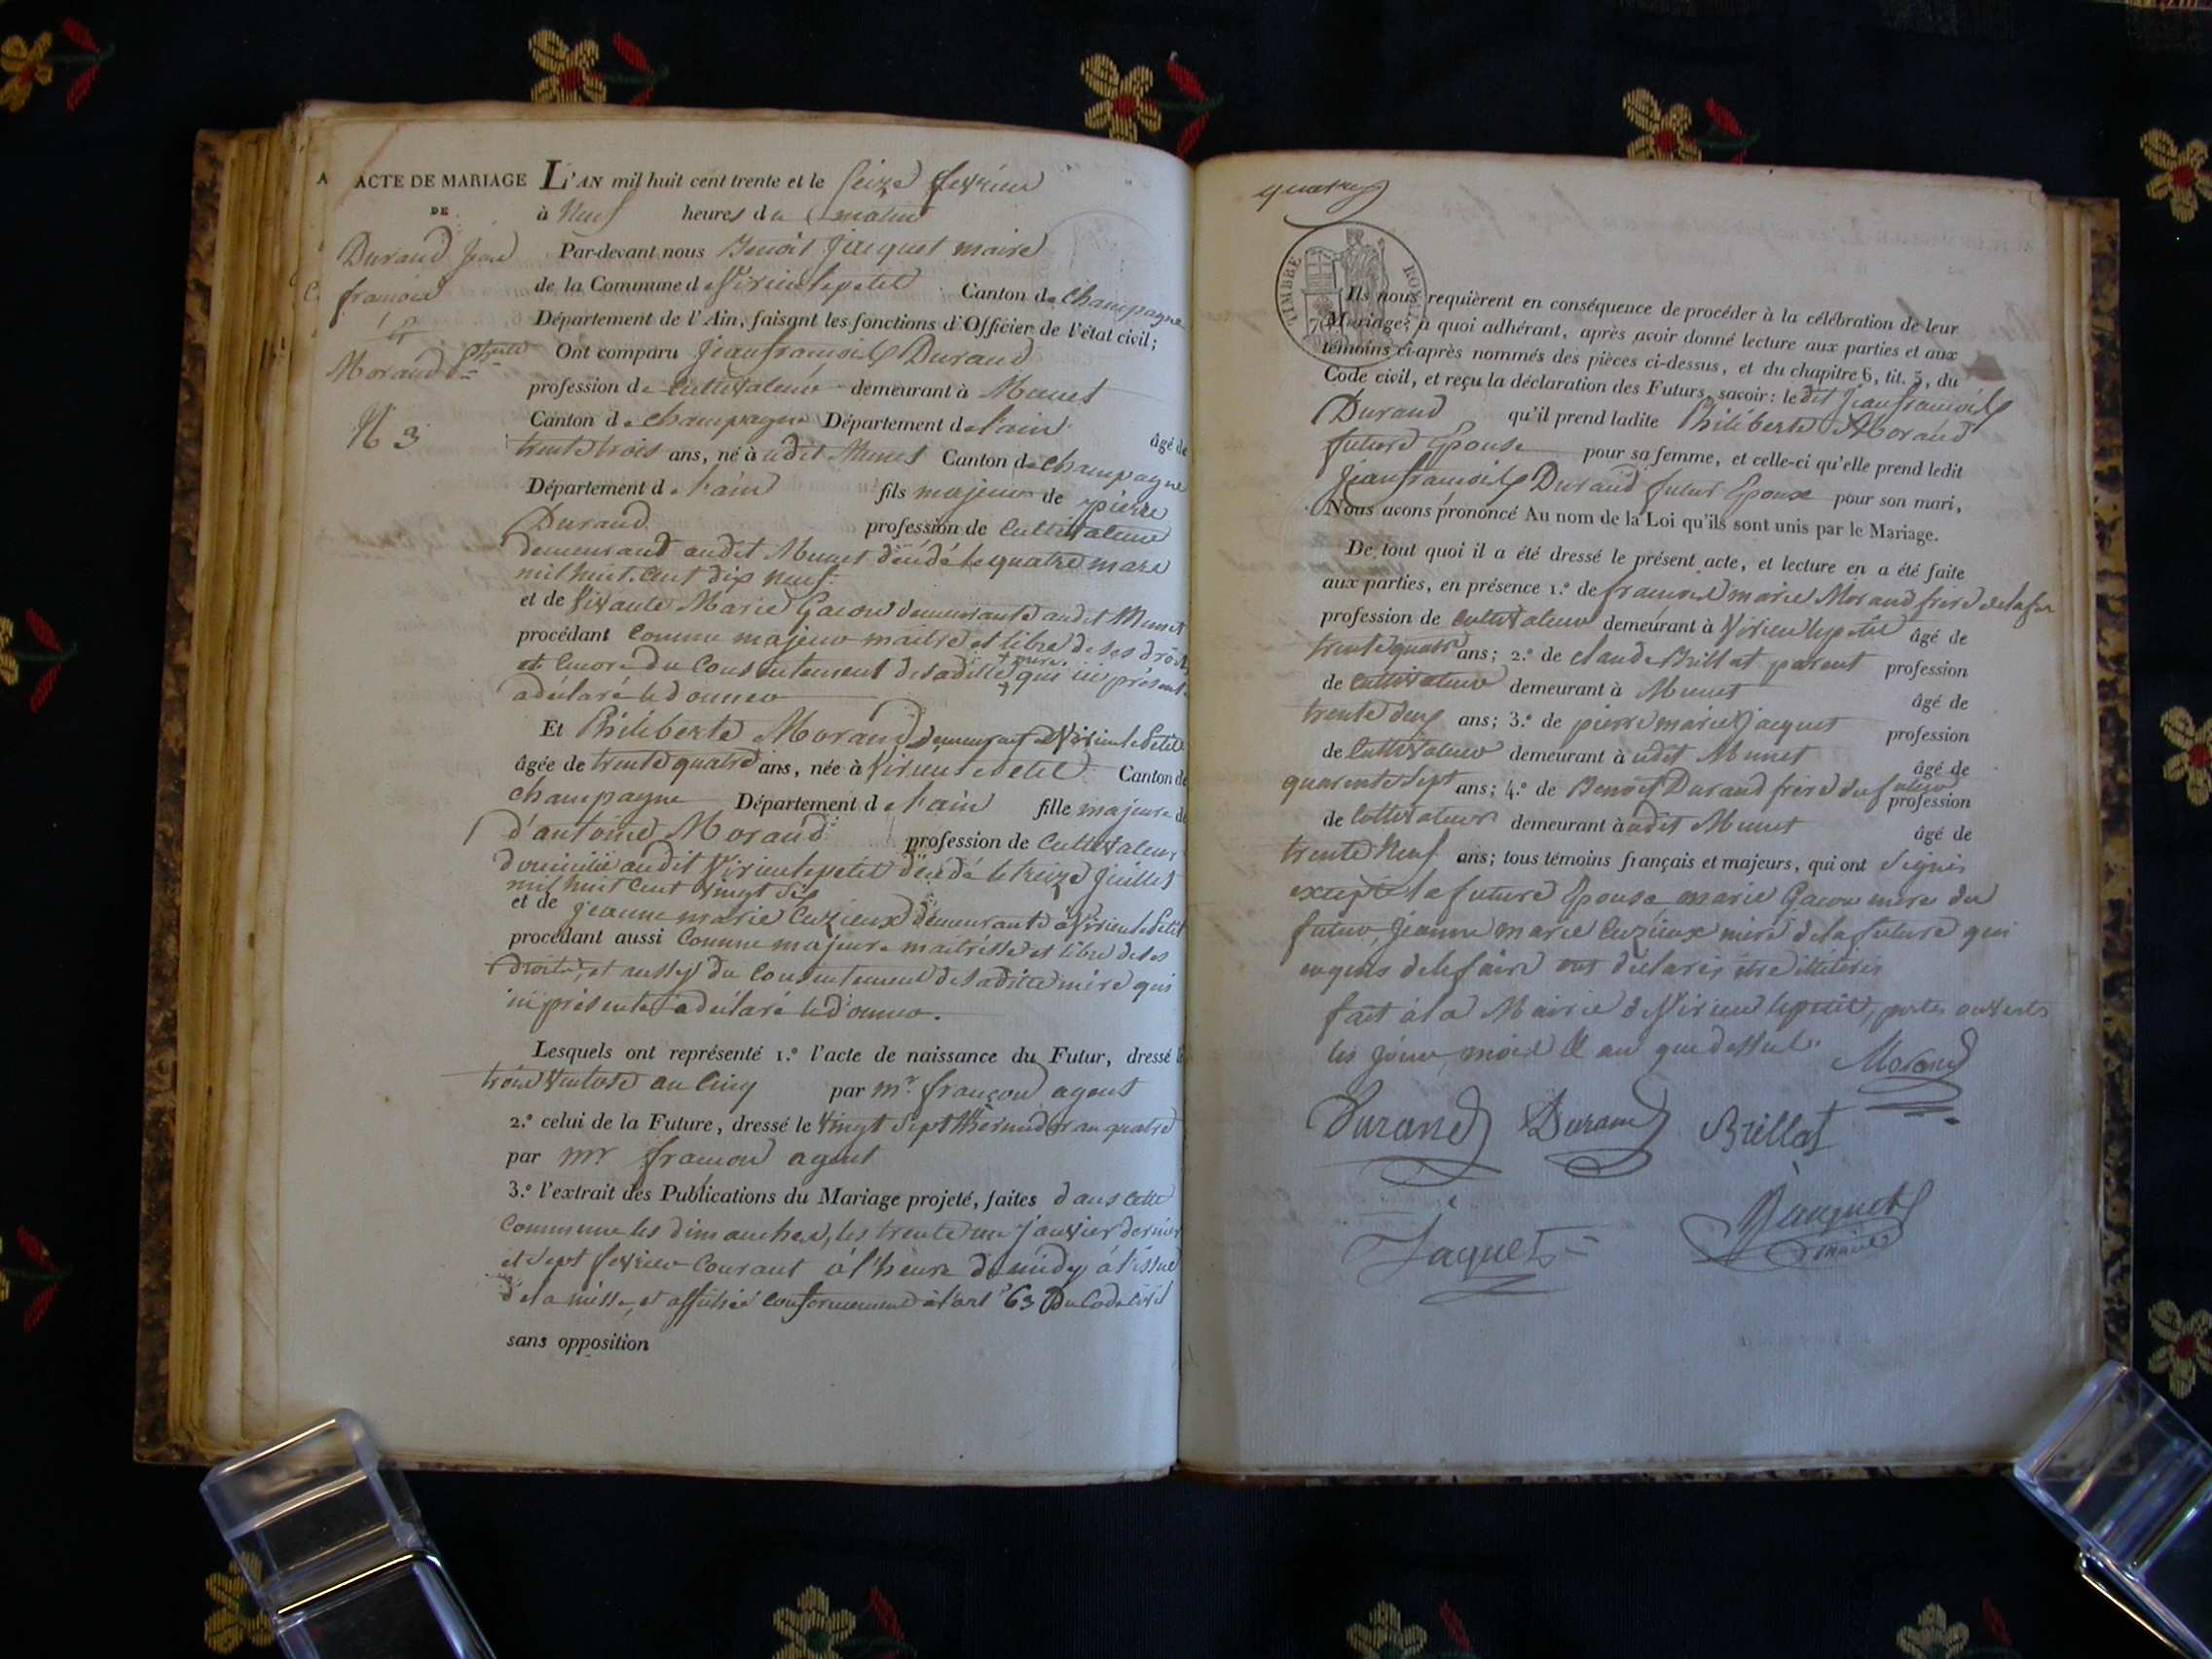 ACTE DE MARIAGE L'AN mil huit cent trente et le Seize fevrier
DE à Neuf heures du matin
Durand Jean Par-devant nous Benoit Jacquet maire
francois de la Commune de Virieulepetit Canton de Champagne
Département de l'Ain, faisant les fonctions d'Officier de l'état civil;
et Ont comparu Jeanfrancois Durand
Morand profession de Cultivateur demeurant à Munet
N 3 Canton de champagne Département de l'ain âgé de
trente trois ans, né à udit Munet Canton de Champagne
Département de l'ain fils majeur de pierre
Durand profession de Cultivateur
demeurant audit Munet décédé le quatre mars
mil huit cent dix neuf
et de Vivante Marie Gacon demeurante audit Munet
procédant Comme majeur maitre et libre de ses droits
et Encore du Consentement de sadille mere qui ici présente
a déclaré le donner
Et Philiberte Morand demeurant a Virieu le Petit
âgée de trente quatre ans, née à Virieu le Petit Canton de
Champagne Département de l'ain fille majeure de
d'antoine Morand profession de Cultivateur
domicilié audit Virieulepetit décédé le treize Juillet
mil huit Cent Vingt Six
et de Jeanne marie Cuzieux demeurante à Virieu le Petit
procédant aussi Comme majeure maitresse et libre de ses
droits, et aussy du Consentement de sadite mère qui
ici présente a déclaré le donner.
Lesquels ont représenté 1.º l'acte de naissance du Futur, dressé le
trois Ventose an Cinq par mr. françon agent
2.º celui de la Future, dressé le Vingt Sept thermidor an quatre
par mr françon agent
3.º l'extrait des Publications du Mariage projeté, faites dans Cette
Commune les dimanches, les trente un Janvier dernier
et Sept fevrier Courant à l'heure de midy à l'issue
de la messe, et affichée Conformement à l'art 63 Du Code Civil
sans opposition
quatre
TIMBRE ROYAL
Ils nous requièrent en conséquence de procéder à la célébration de leur
Mariage; à quoi adhérant, après avoir donné lecture aux parties et aux
témoins ci-après nommés des pièces ci-dessus, et du chapitre 6, tit. 5, du
Code civil, et reçu la déclaration des Futurs, savoir: le dit Jeanfrancois
Durand qu'il prend ladite Philiberte Morand
future Epouse pour sa femme, et celle-ci qu'elle prend ledit
Jeanfrancois Durand futur Epoux pour son mari,
Nous avons prononcé Au nom de la Loi qu'ils sont unis par le Mariage.
De tout quoi il a été dressé le présent acte, et lecture en a été faite
aux parties, en présence 1.º de francois marie Morand frere de la
profession de Cultivateur demeurant à Virieu lepetit âgé de
trente quatre ans; 2.º de claude Brillat parent profession
de Cultivateur demeurant à Munet âgé de
trente deux ans; 3.º de pierre marie Jacquet profession
de Cultivateur demeurant à udit Munet âgé de
quarente Sept ans; 4.º de Benoit Durand frère du futur profession
de Cultivateur demeurant à udit Munet âgé de
trente Neuf ans; tous témoins français et majeurs, qui ont Signés
excepté la future Epouse, marie Gacon mere du
futur, Jeanne marie Cuzieux mere de la future qui
requis de le faire ont déclarés être illiterés
fait à la Mairie de Virieu lepetit, portes ouvertes
les jour, mois et an que dessus.
Morand
Durand Durand Brillat
Jaquet Jacquet
maire